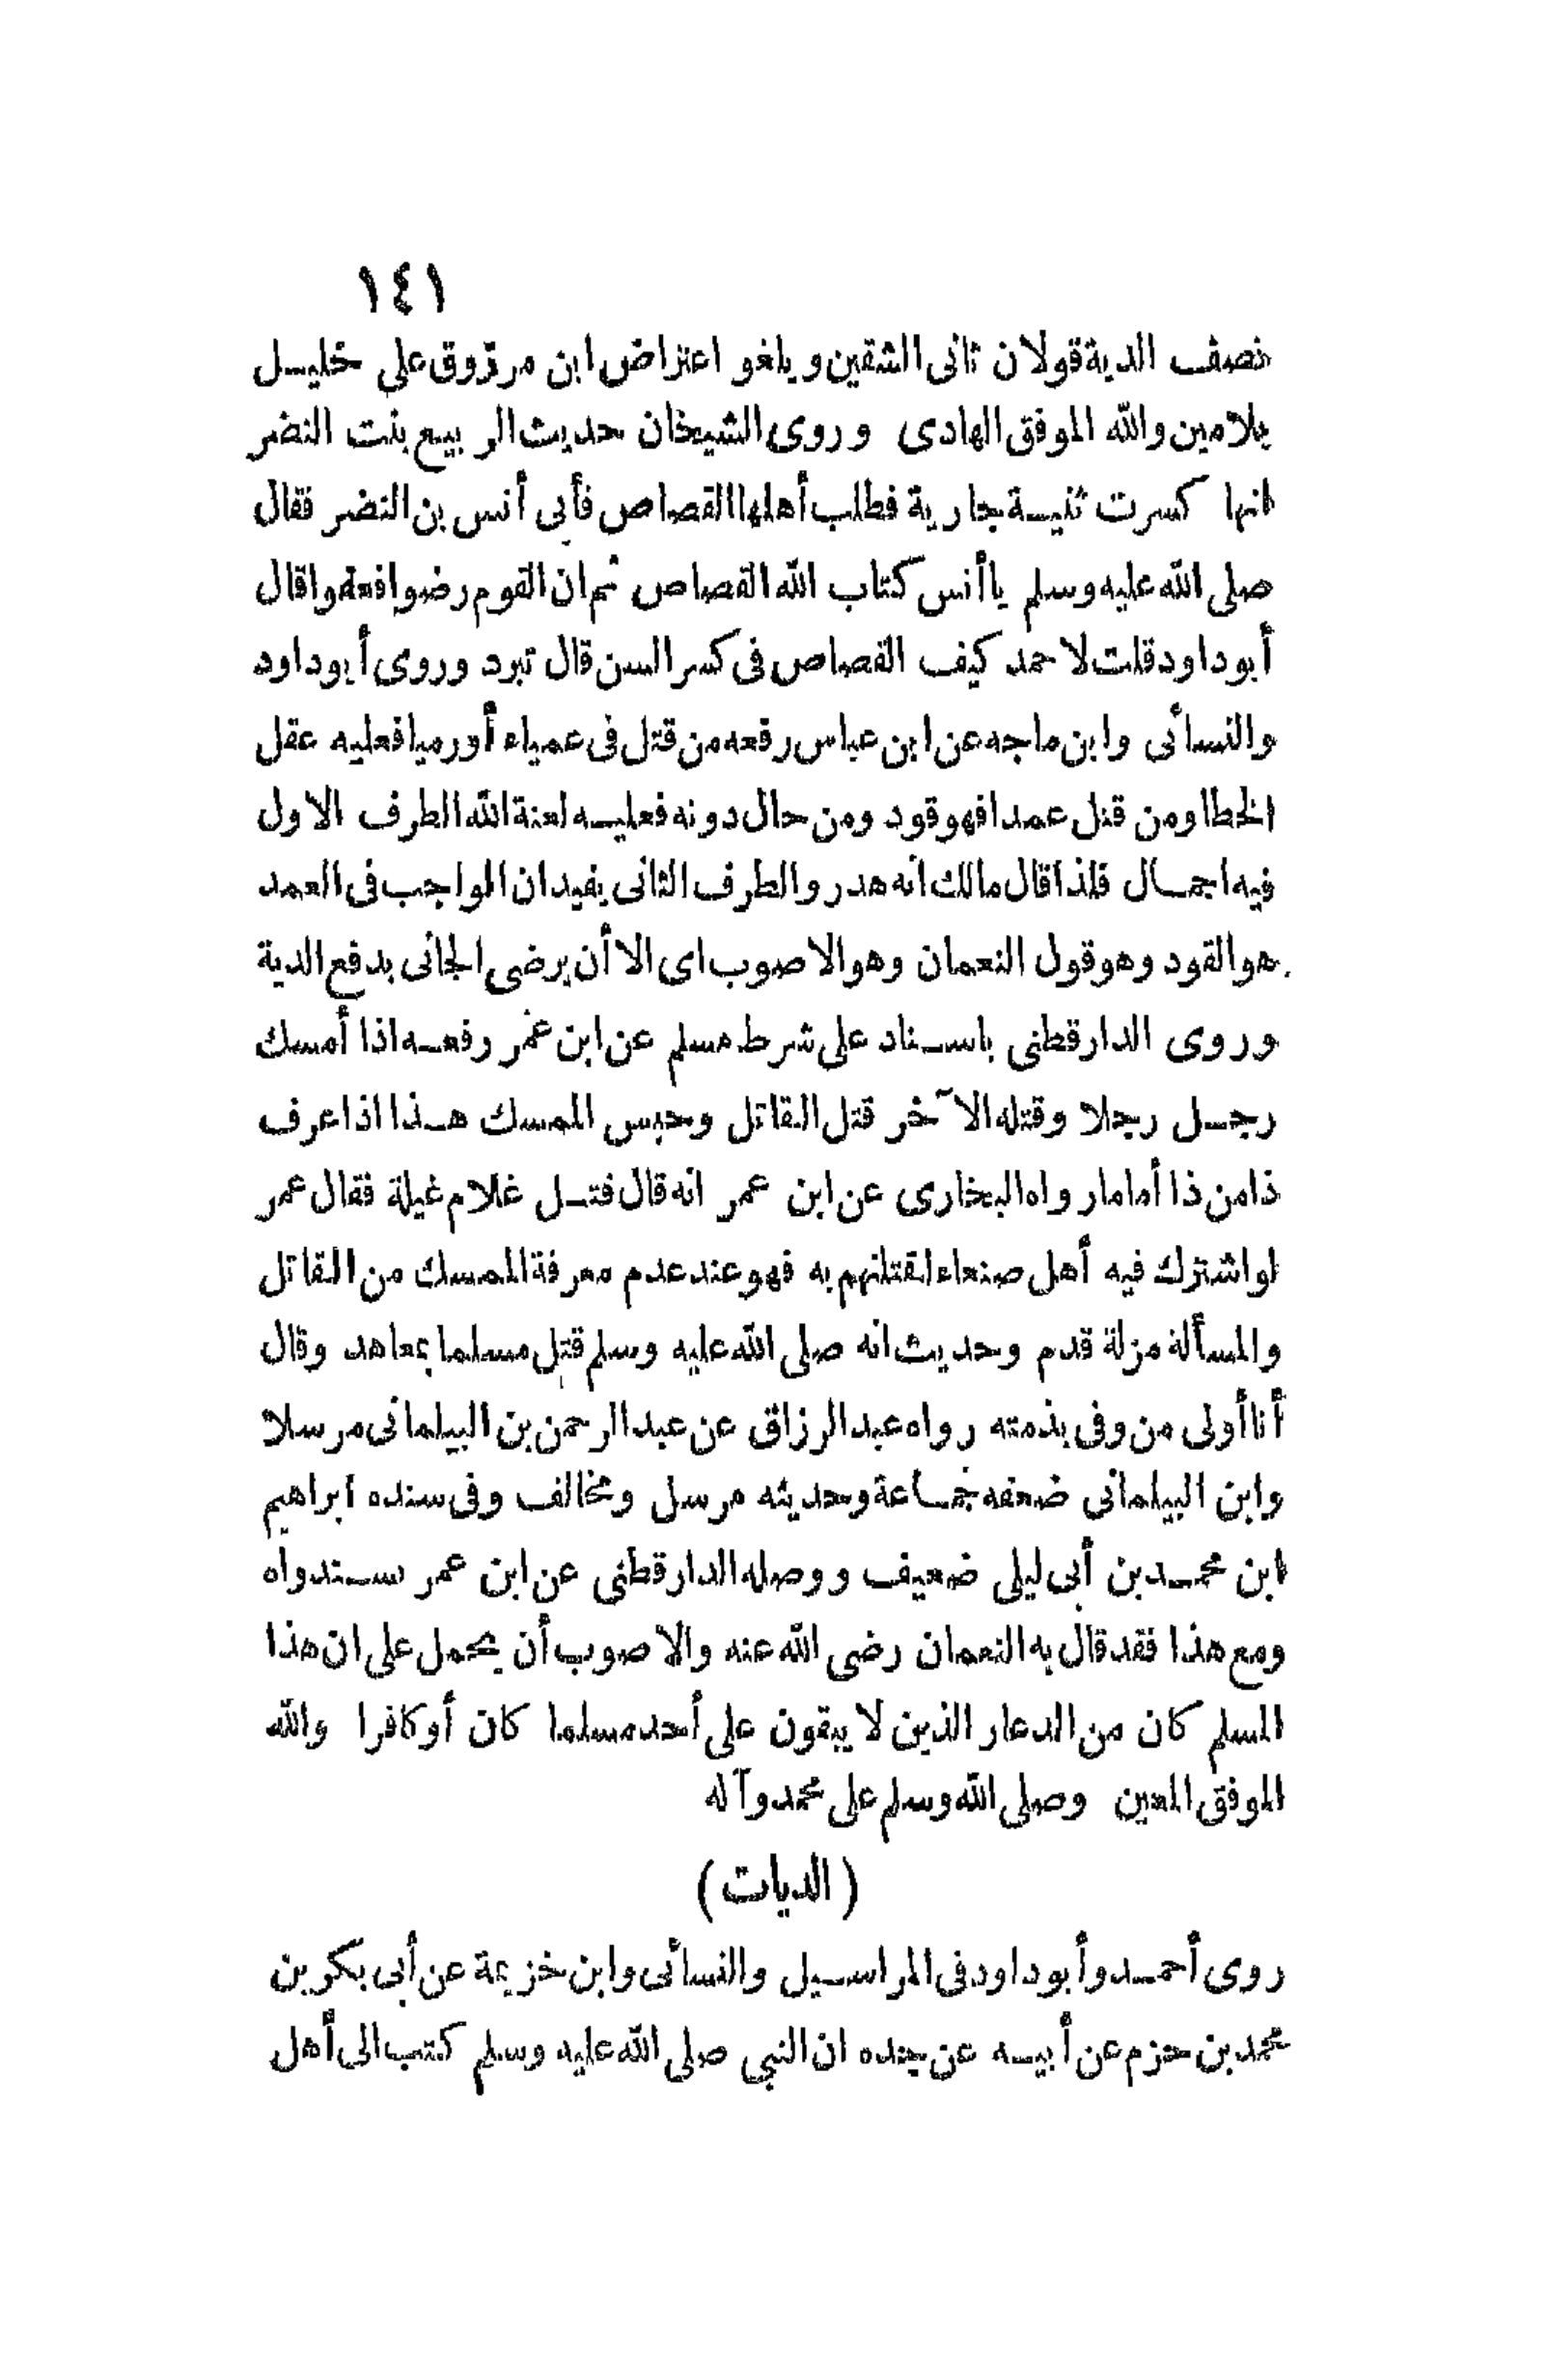 ١٤١
نصف الدية قولان ثانى الشقين ويلغو اعتراض ابن مرزوق على خليل
بلامين والله الموفق الهادى وروى الشيخان حديث الربيع بنت النضر
انها كسرت ثنية جارية فطلب أهلها القصاص فأبى أنس بن النضر فقال
صلى الله عليه وسلم يا أنس كتاب الله القصاص ثم ان القوم رضوا فعفوا قال
أبو داود قلت لاحمد كيف القصاص فى كسر السن قال تبرد وروى أبو داود
والنسائى وابن ماجه عن ابن عباس رفعه من قتل فى عمياء أو رميا فعليه عقل
الخطا ومن قتل عمدا فهو قود ومن حال دونه فعليه لعنة الله الطرف الاول
فيه اجمال فلذا قال مالك انه هدر والطرف الثانى يفيد ان الواجب فى العمد
هو القود وهو قول النعمان وهو الاصوب اى الا أن يرضى الجانى بدفع الدية
وروى الدارقطنى باسناد على شرط مسلم عن ابن عمر رفعه اذا أمسك
رجل رجلا وقتله الآخر قتل القاتل وحبس الممسك هذا اذا عرف
ذا من ذا أما ما رواه البخارى عن ابن عمر انه قال قتل غلام غيلة فقال عمر
لو اشترك فيه أهل صنعاء لقتلتهم به فهو عند عدم معرفة الممسك من القاتل
والمسألة مزلة قدم وحديث انه صلى الله عليه وسلم قتل مسلما بمعاهد وقال
أنا أولى من وفى بذمته رواه عبد الرزاق عن عبد الرحمن بن البيلمانى مرسلا
وابن البيلمانى ضعفه جماعة وحديثه مرسل ومخالف وفى سنده ابراهيم
ابن محمد بن أبى ليلى ضعيف ووصله الدارقطنى عن ابن عمر بسند واه
ومع هذا فقد قال به النعمان رضى الله عنه والاصوب أن يحمل على ان هذا
المسلم كان من الدعار الذين لا يبقون على أحد مسلما كان أو كافرا والله
الموفق المعين وصلى الله وسلم على محمد وآله
(الديات)
روى أحمد وأبو داود فى المراسيل والنسائى وابن خزيمة عن أبى بكر بن
محمد بن حزم عن أبيه عن جده ان النبى صلى الله عليه وسلم كتب الى أهل